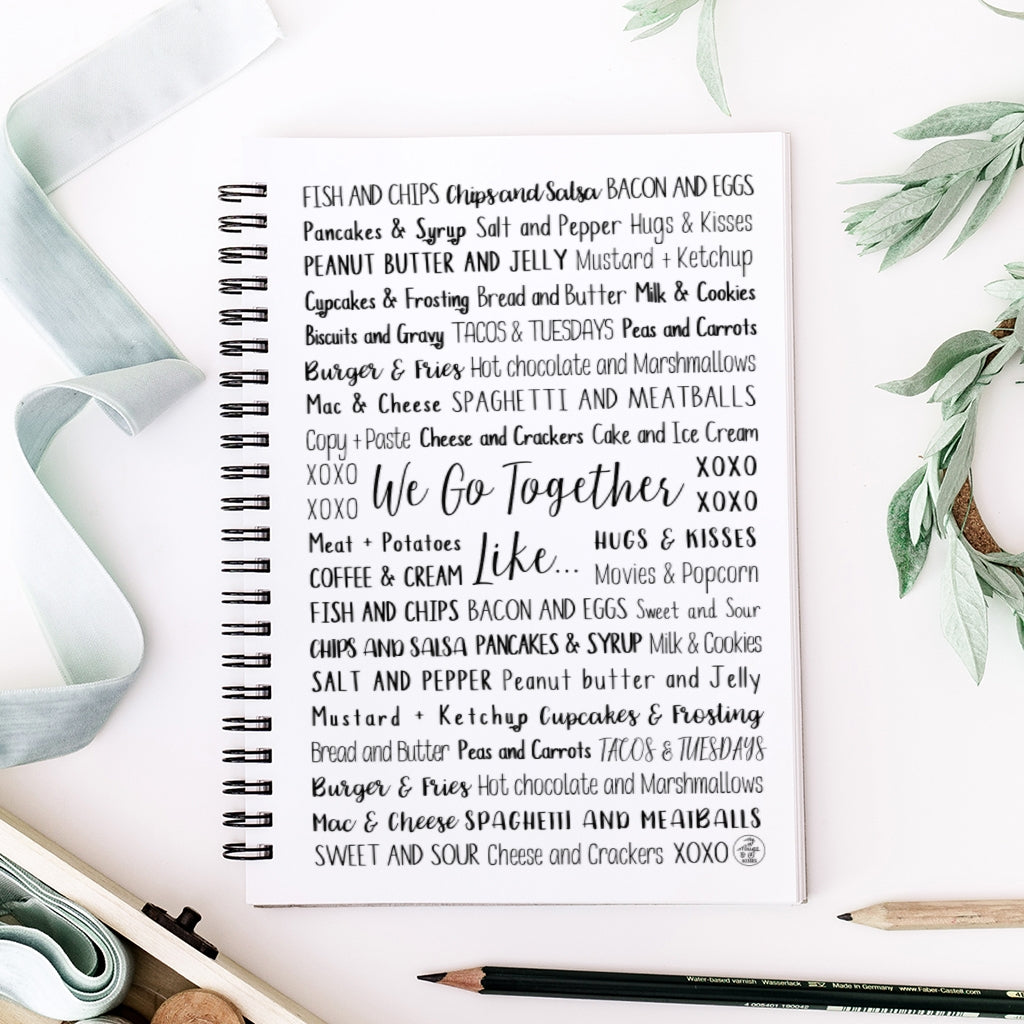 FISH AND CHIPS Chips and Salsa BACON AND EGGS
Pancakes & Syrup Salt and Pepper Hugs & Kisses
PEANUT BUTTER AND JELLY Mustard + Ketchup
Cupcakes & Frosting Bread and Butter Milk & Cookies
Biscuits and Gravy TACOS & TUESDAYS Peas and Carrots
Burger & Fries Hot chocolate and Marshmallows
Mac & Cheese SPAGHETTI AND MEATBALLS
Copy + Paste Cheese and Crackers Cake and Ice Cream
XOXO XOXO
We Go Together
XOXO XOXO
Meat + Potatoes HUGS & KISSES
Like...
COFFEE & CREAM Movies & Popcorn
FISH AND CHIPS BACON AND EGGS Sweet and Sour
CHIPS AND SALSA PANCAKES & SYRUP Milk & Cookies
SALT AND PEPPER Peanut butter and Jelly
Mustard + Ketchup Cupcakes & Frosting
Bread and Butter Peas and Carrots TACOS & TUESDAYS
Burger & Fries Hot chocolate and Marshmallows
Mac & Cheese SPAGHETTI AND MEATBALLS
SWEET AND SOUR Cheese and Crackers XOXO
Water-based varnish Wasserlack Made in Germany www.Faber-Castell.com
4 005401 190042